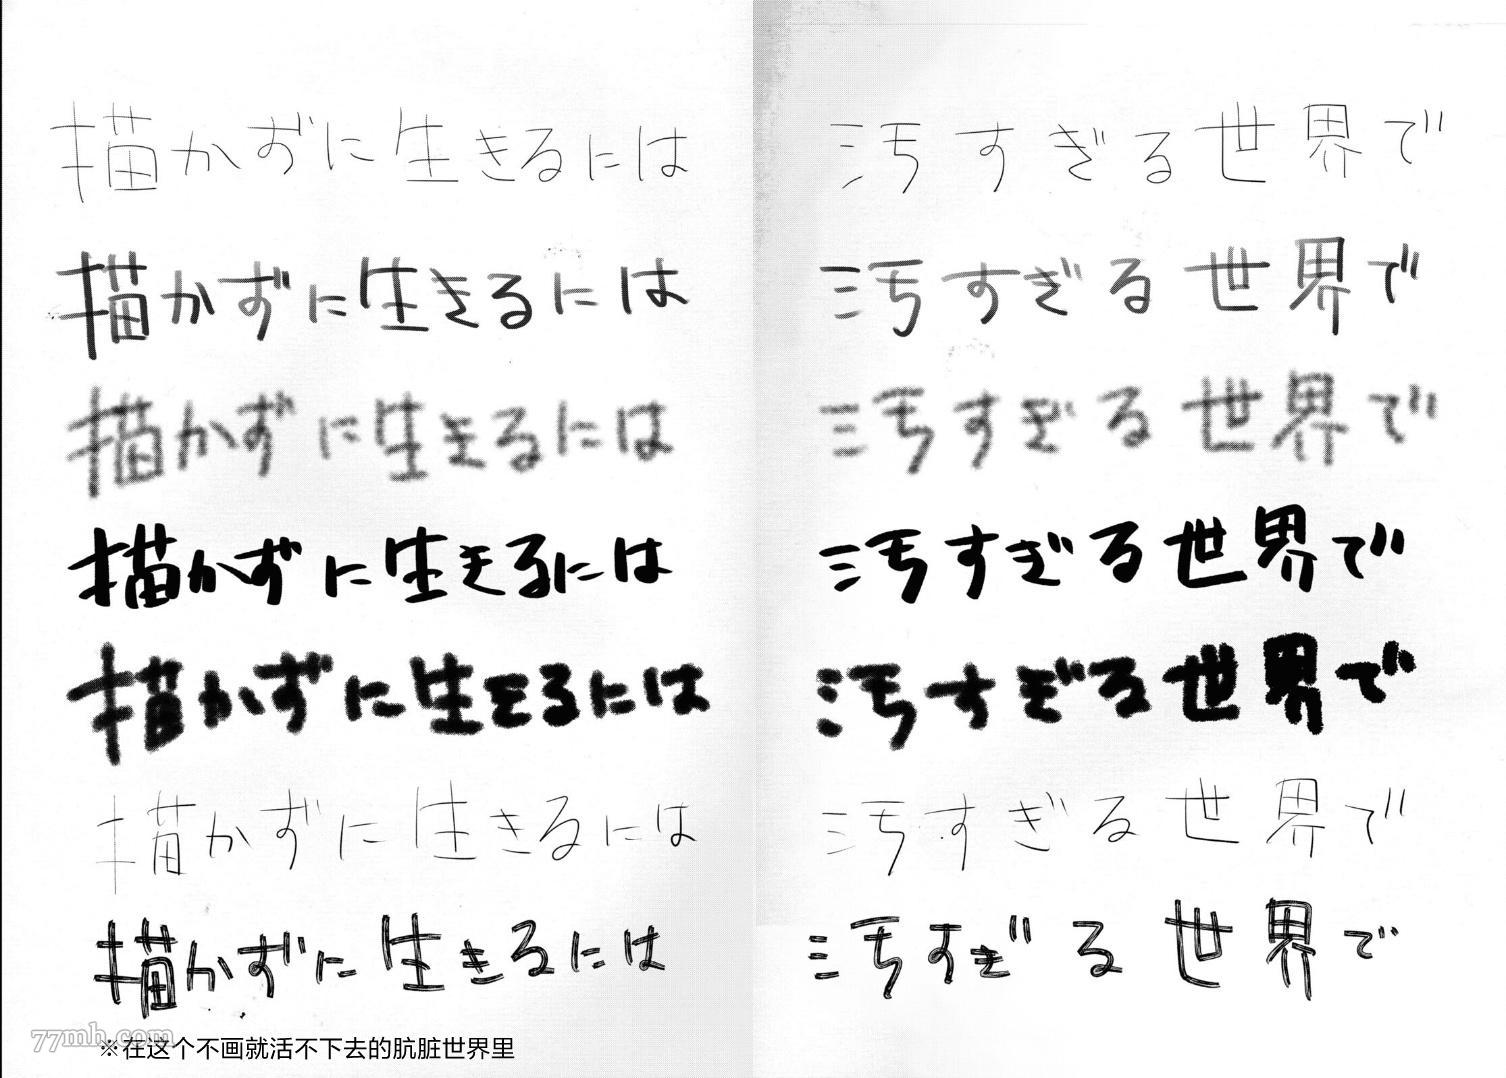 描かずに生きるには 汚すぎる世界で
描かずに生きるには 汚すぎる世界で
描かずに生きるには 汚すぎる世界で
描かずに生きるには 汚すぎる世界で
描かずに生きるには 汚すぎる世界で
描かずに生きるには 汚すぎる世界で
描かずに生きるには 汚すぎる世界で
77mh.com
※在这个不画就活不下去的肮脏世界里